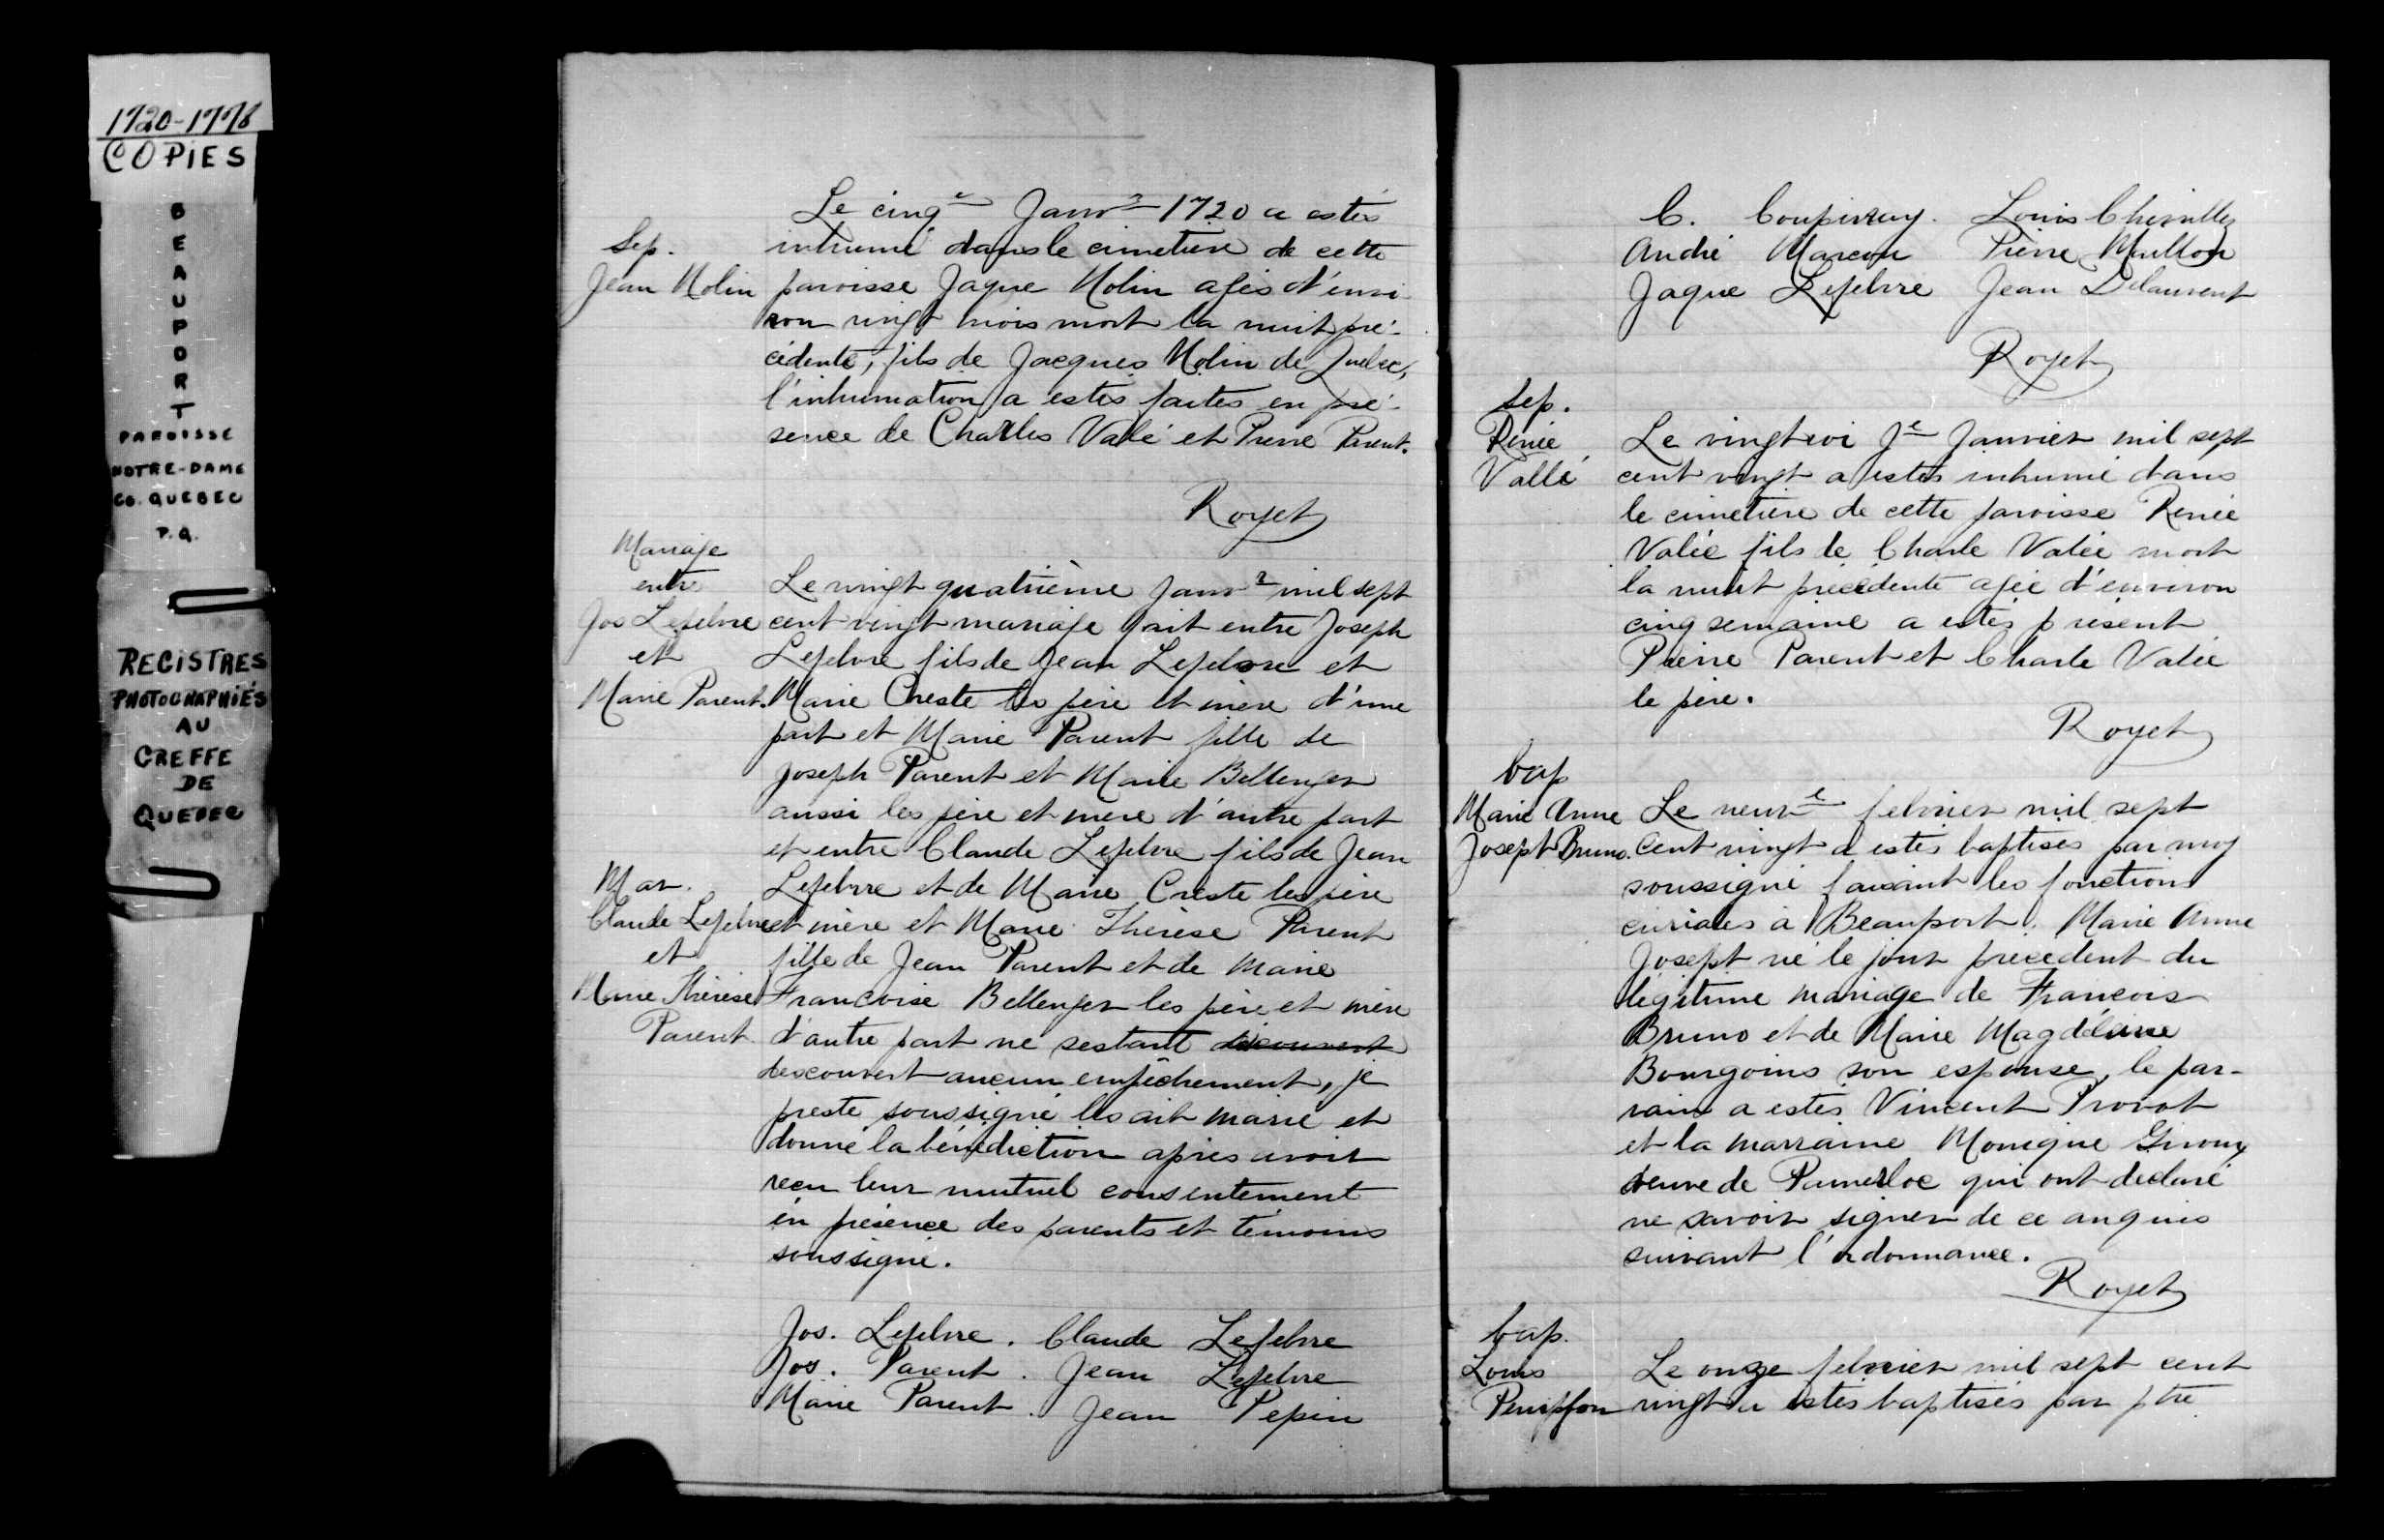 1720-1778
COPIES
BEAUPORT
PAROISSE
NOTRE-DAME
CO. QUEBEC
P.Q.
REGISTRES
PHOTOGRAPHIÉS
AU
GREFFE
DE
QUEBEC
Sep.
Jean Molin
Le cinq e Janv r 1720 a estés
inhumé dans le cimetiere de cette
paroisse Jaque Molin agés d'envi
ron vingt mois mort la nuit pré-
cédente, fils de Jacques Molin de Quebec,
l'inhumation a estés faites en pré-
sence de Charles Valé et Pierre Parent.
Royer
Mariage
entre
Jos Lefebvre
et
Marie Parent.
Le vingt quatrième Janv r mil sept
cent vingt mariage fait entre Joseph
Lefebvre fils de Jean Lefebvre et
Marie Creste les père et mère d'une
part et Marie Parent fille de
Joseph Parent et Marie Bellenger
aussi les père et mère d'autre part
et entre Claude Lefebvre fils de Jean
Mar.
Claude Lefebvre
et
Marie Thérèse
Parent
Lefebvre et de Marie Creste les père
et mère et Marie Thérèse Parent
fille de Jean Parent et de Marie
Francoise Bellenger les père et mère
d'autre part ne sestant découvert
descouvert aucun empêchement, je
preste soussigné les ait marié et
donné la bénédiction après avoir
recu leur mutuel consentement
en présence des parents et témoins
soussigné.
Jos. Lefebvre. Claude Lefebvre
Jos. Parent. Jean Lefebvre
Marie Parent. Jean Pepin
C. Louis
André Marcou Pierre Maillou
Jaque Lefebvre Jean Delaurent
Royer
Sep.
Renée
Vallé
Le vingt J e Janvier mil sept
cent vingt a estés inhumé dans
le cimetière de cette paroisse Renée
Valée fils de Charle Valée mort
la nuit precedente agée d'environ
cinq semaine a estés présent
Pierre Parent et Charle Valée
le père.
Royer
bap
Marie Anne
Josept Bruno.
Le neuv e febvrier mil sept
Cent vingt a estés baptisés par moy
soussigné faisant les fonction
curiales à Beauport. Marie Anne
Josept né le jour précédent du
légitime mariage de Francois
Bruno et de Marie Magdéleine
Bourgoins son espouse, le par-
rain a estés Vincent Provot
et la marraine Monique Giroux
veuve de qui ont declaré
ne savoir signer de ce anquis
suivant l'ordonnance.
Royer
bap.
Louis
Le onze febvrier mil sept cent
vingt a estés baptisés par ptre